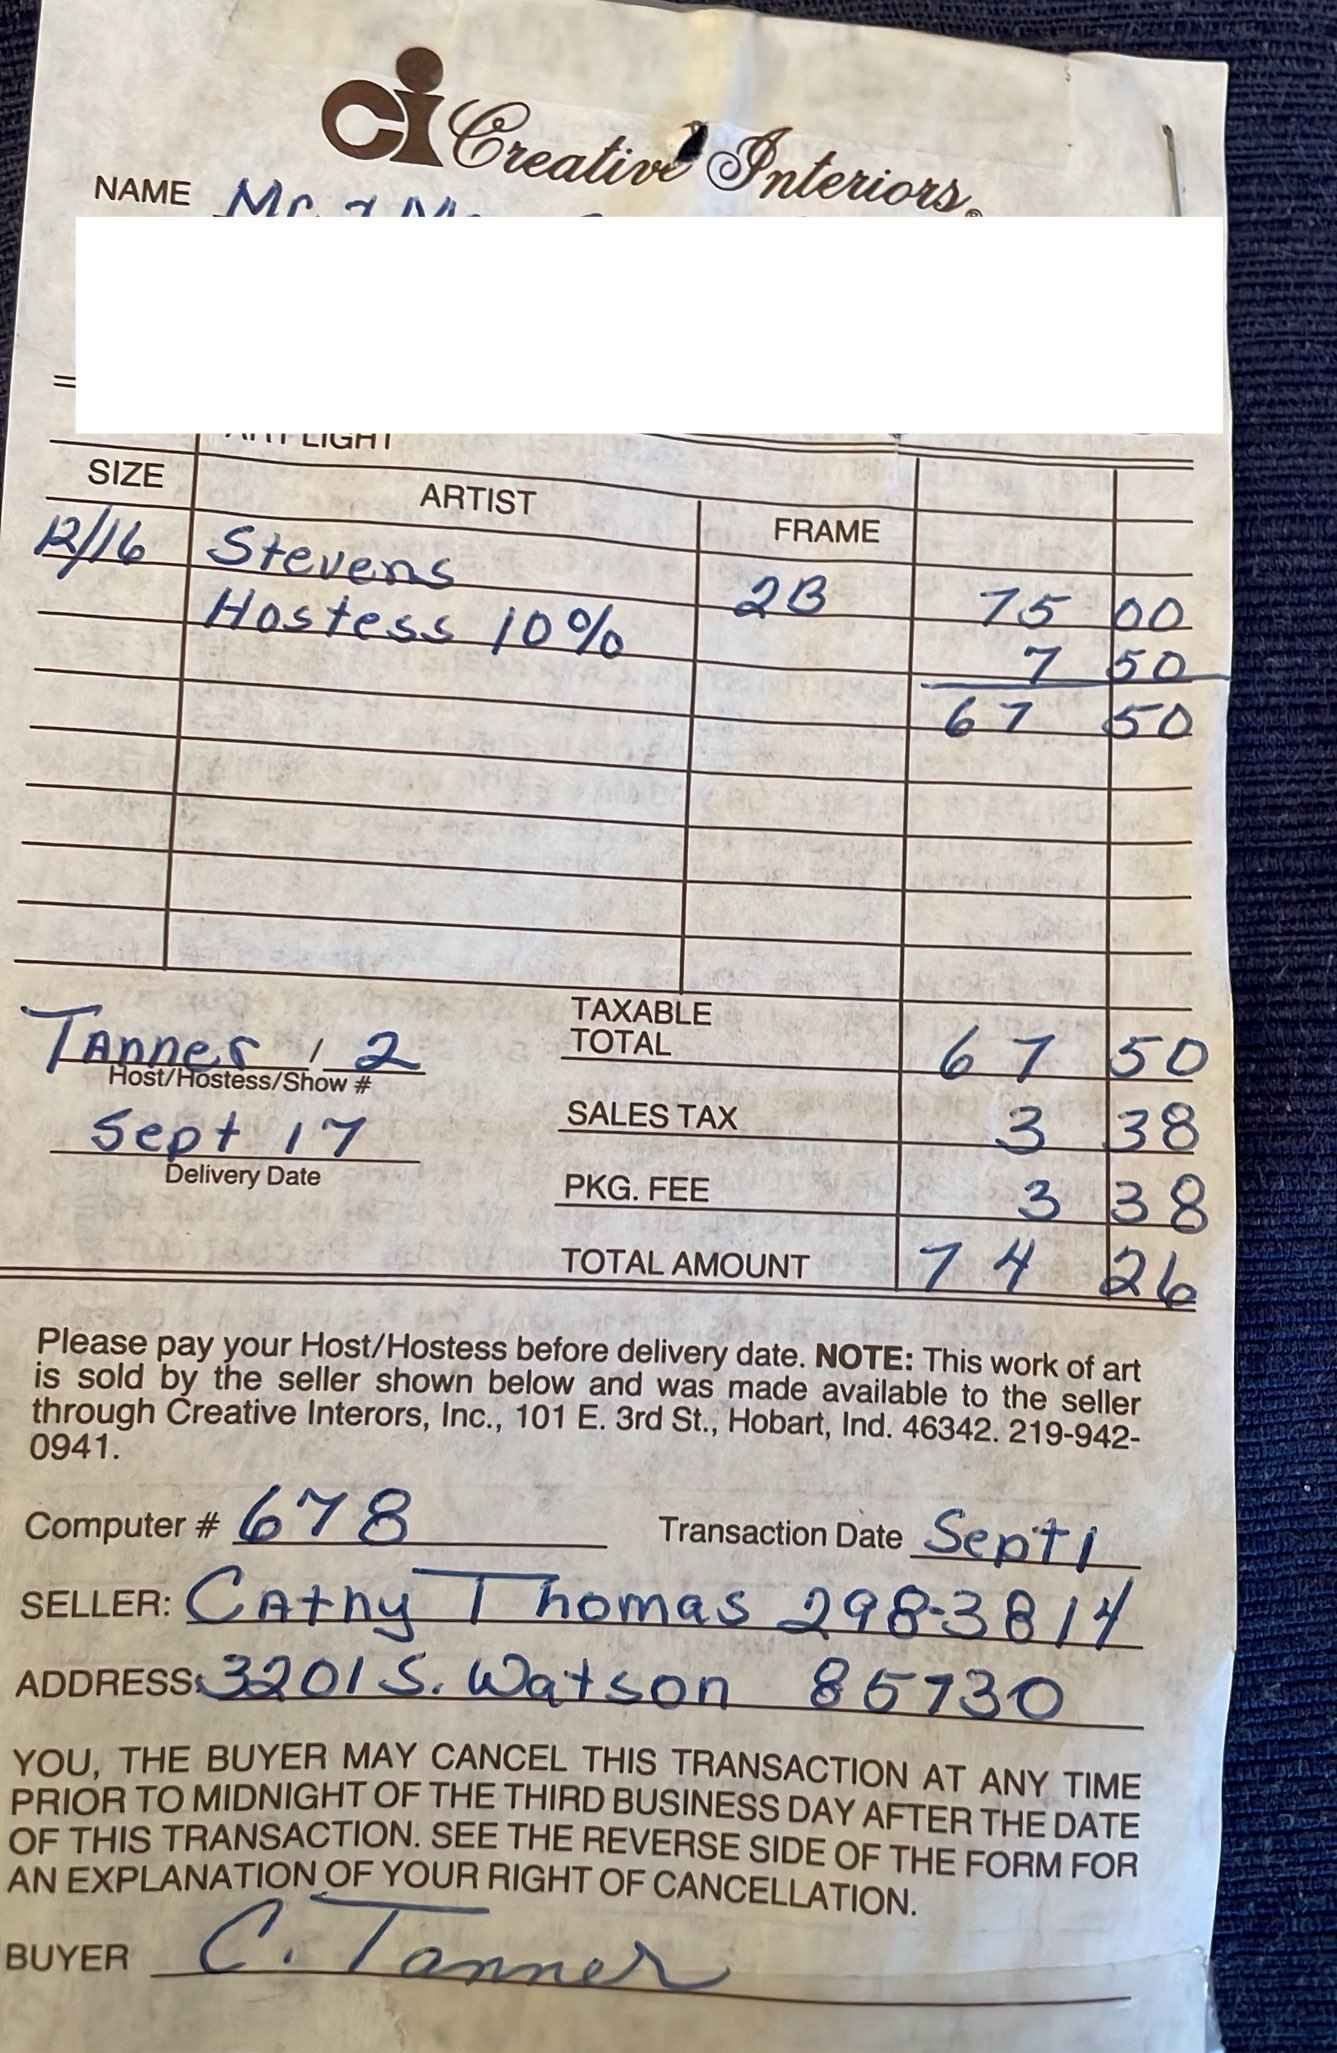 ci Creative Interiors®
NAME Mr &
ART LIGHT
SIZE ARTIST FRAME
12/16 Stevens 2B 75 00
Hostess 10% 7 50
67 50
Tanner / 2 TAXABLE TOTAL 67 50
Host/Hostess/Show #
Sept 17 SALES TAX 3 38
Delivery Date
PKG. FEE 3 38
TOTAL AMOUNT 74 26
Please pay your Host/Hostess before delivery date. NOTE: This work of art
is sold by the seller shown below and was made available to the seller
through Creative Interors, Inc., 101 E. 3rd St., Hobart, Ind. 46342. 219-942-
0941.
Computer # 678 Transaction Date Sept 1
SELLER: Cathy Thomas 298-3814
ADDRESS: 3201 S. Watson 85730
YOU, THE BUYER MAY CANCEL THIS TRANSACTION AT ANY TIME
PRIOR TO MIDNIGHT OF THE THIRD BUSINESS DAY AFTER THE DATE
OF THIS TRANSACTION. SEE THE REVERSE SIDE OF THE FORM FOR
AN EXPLANATION OF YOUR RIGHT OF CANCELLATION.
BUYER C. Tanner